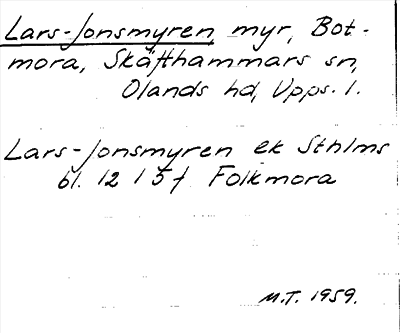 Lars-Jonsmyren myr, Bot-
mora, Skäfthammars sn,
Olands hd, Upps. l.
Lars-Jonsmyren ek Sthlms
bl. 12 I 5 f Folkmora
M.T. 1959.